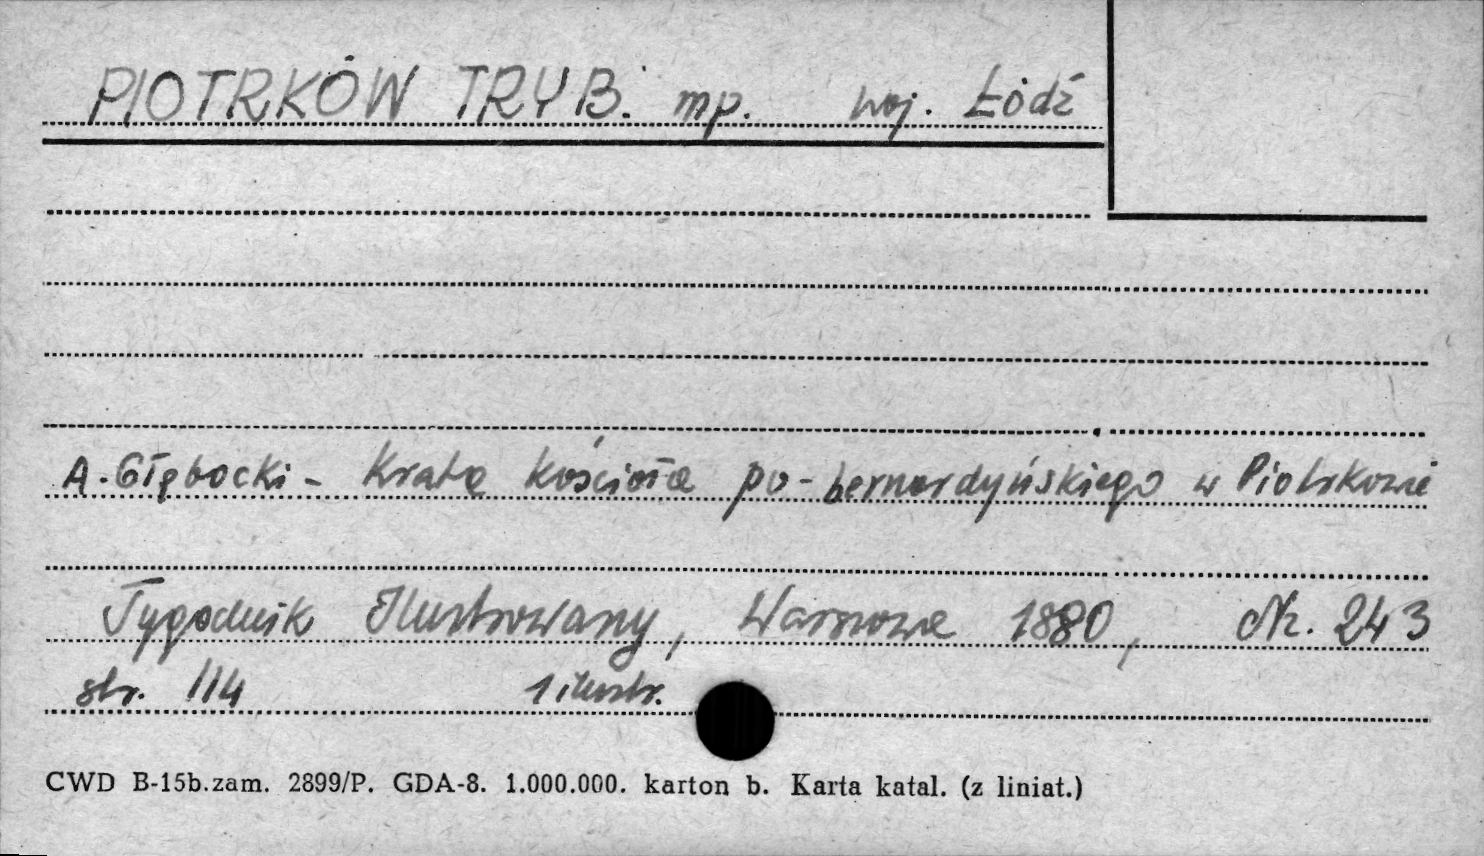 PIOTRKÓW TRYB. mp. woj. Łódź
A. Głębocki - Krata kościoła po-bernardyńskiego w Piotrkowie
Tygodnik Ilustrowany, Warszawa 1880, Nr. 243
str. 114 1 ilustr.
CWD B-15b.zam. 2899/P. GDA-8. 1.000.000. karton b. Karta katal. (z liniat.)